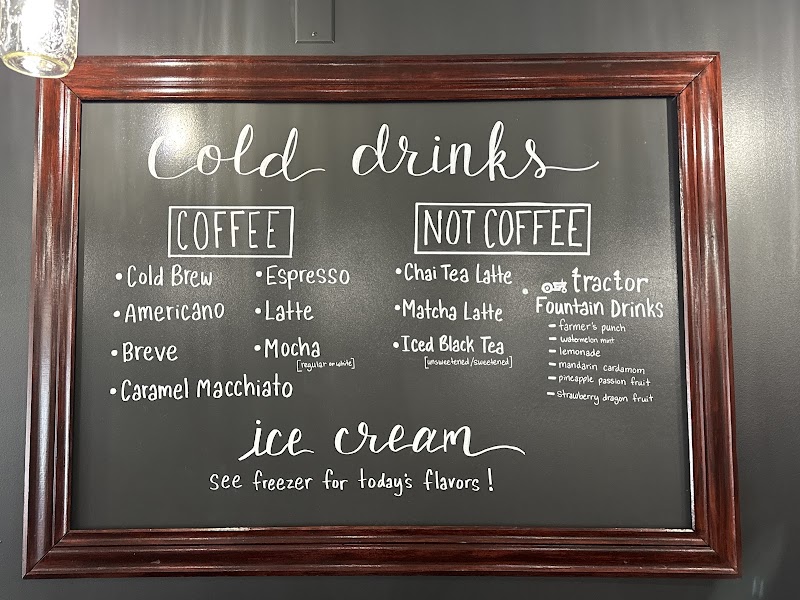 cold drinks
COFFEE
• Cold Brew
• Americano
• Breve
• Caramel Macchiato
• Espresso
• Latte
• Mocha
[regular or white]
NOT COFFEE
• Chai Tea Latte
• Matcha Latte
• Iced Black Tea
[unsweetened/sweetened]
• tractor
Fountain Drinks
– farmer's punch
– watermelon mint
– lemonade
– mandarin cardamom
– pineapple passion fruit
– strawberry dragon fruit
ice cream
see freezer for today's flavors!